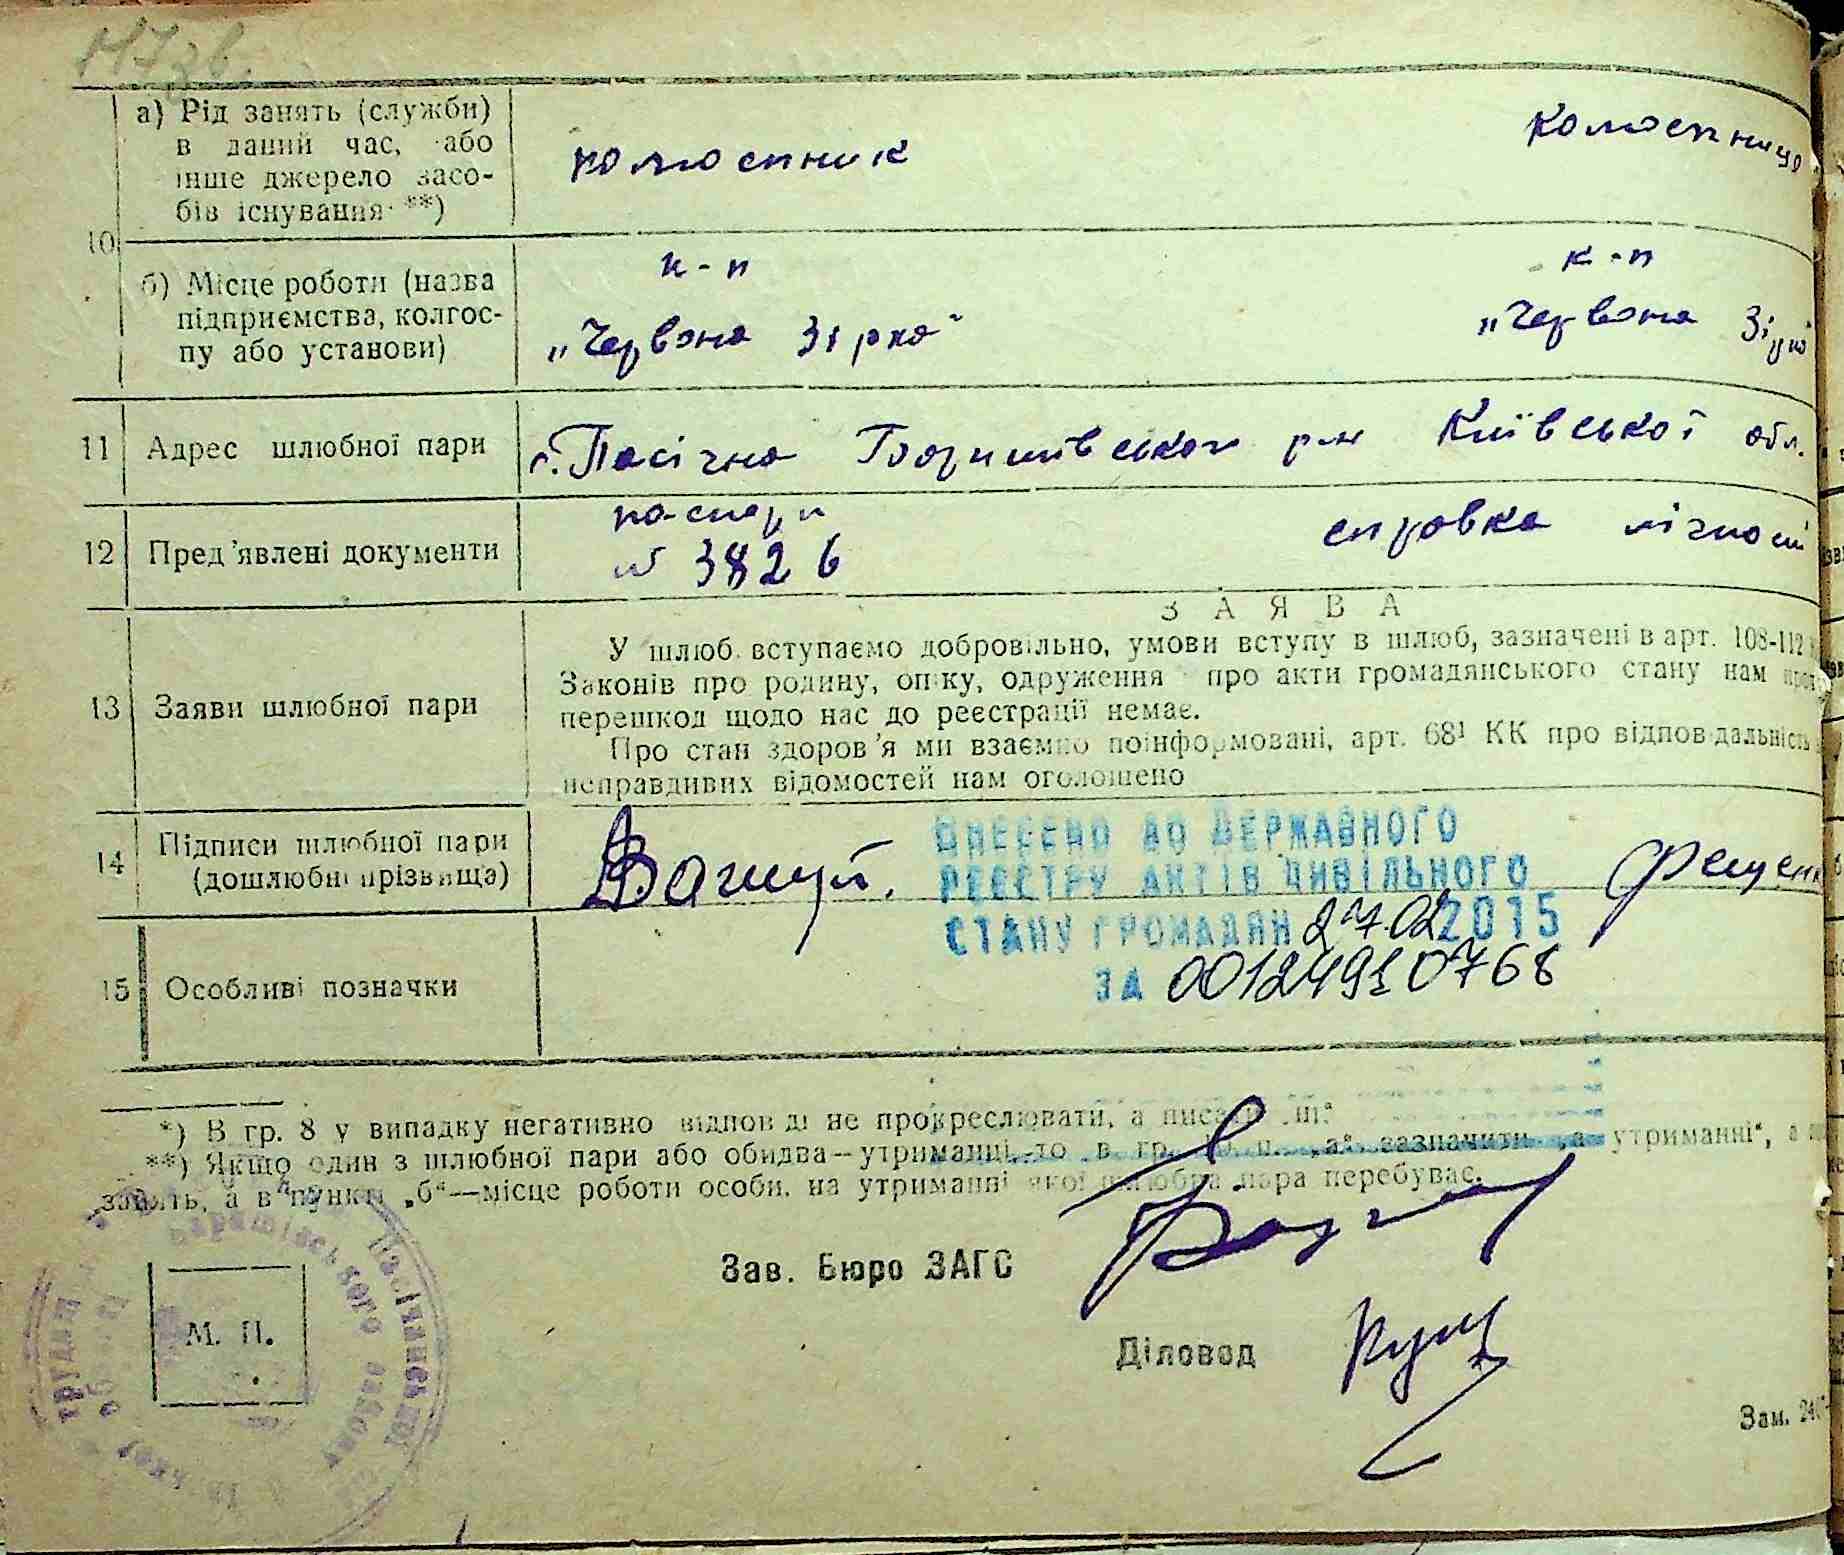 117 зв.
а) Рід занять (служби)
в даний час, або
інше джерело засо-
бів існування **)
колгоспник
колгоспниця
10
б) Місце роботи (назва
підприємства, колгос-
пу або установи)
к-п
„Червона Зірка“
к-п
„Червона Зірка
11 Адрес шлюбної пари
с. Пасічна Баришівського р-н Київської обл.
12 Пред'явлені документи
паспорт
№ 3826
справка
13 Заяви шлюбної пари
ЗАЯВА
У шлюб вступаємо добровільно, умови вступу в шлюб, зазначені в арт. 108-112
Законів про родину, опіку, одруження про акти громадянського стану нам
перешкод щодо нас до реєстрації немає.
Про стан здоров'я ми взаємно поінформовані, арт. 68¹ КК про відповідальність
неправдивих відомостей нам оголошено
14 Підписи шлюбної пари
(дошлюбні прізвища)
Фещенк
ВНЕСЕНО ДО ДЕРЖАВНОГО
РЕЄСТРУ АКТІВ ЦИВІЛЬНОГО
СТАНУ ГРОМАДЯН 27.02 2015
ЗА 00124910768
15 Особливі позначки
*) В гр. 8 у випадку негативно відповіді не прокреслювати, а писати „ні“
**) Якщо один з шлюбної пари або обидва—утриманці, то в гр. 10 п. „а“ зазначити „на утриманні“, а
занять, а в пункті „б“—місце роботи особи, на утриманні якої шлюбна пара перебуває.
Зав. Бюро ЗАГС
М. П.
Діловод
Зам.